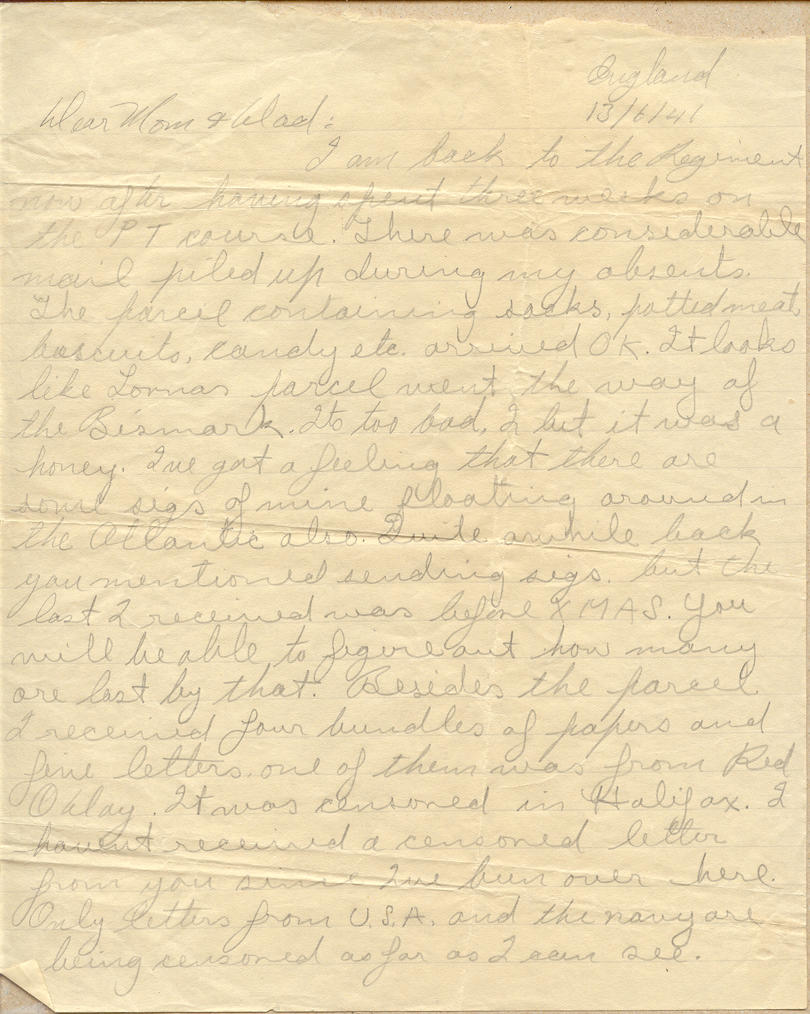 England
13/6/41
Dear Mom & Dad:
I am back to the Regiment
now after having spent three weeks on
the P T course. There was considerable
mail piled up during my absents.
The parcil containing socks, potted meat,
bascuits, candy etc. arrived OK. It looks
like Lornas parcel went the way of
the Bismark. Its too bad, I bet it was a
honey. Ive got a feeling that there are
some sigs of mine floating around in
the Atlantic also. Quite awhile back
you mentioned sending sigs. but the
last I received was before XMAS. You
will be able to figure out how many
are lost by that. Besides the parcel
I received four bundles of papers and
five letters. one of them was from Red
It was censored in Halifax. I
havent received a censored letter
from you since Ive been over here.
Only letters from U.S.A. and the navy are
being censored as far as I can see.